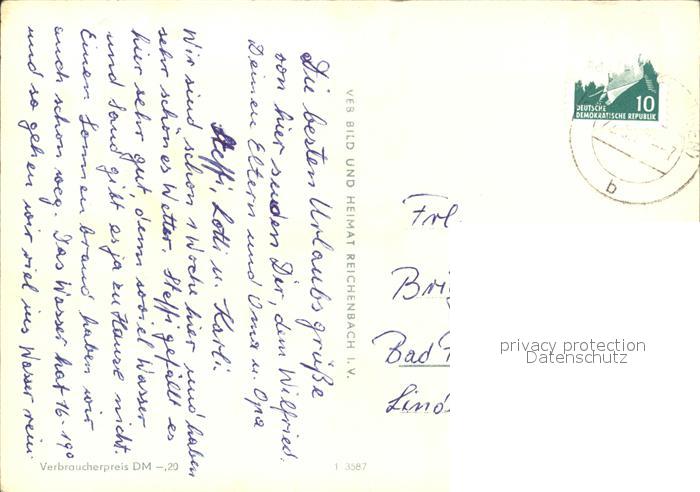 Die besten Urlaubsgrüße
von hier senden Dir, dem Wilfried.
Deinen Eltern und Oma u. Opa
Steffi, Lotti u. Karli.
Wir sind schon 1 Woche hier und haben
sehr schönes Wetter. Steffi gefällt es
hier sehr gut, denn soviel Wasser
und Sand gibt es ja zu Hause nicht.
Einen Sonnenbrand haben wir
auch schon weg. Das Wasser hat 16-19°
und so gehen wir viel ins Wasser rein.
VEB BILD UND HEIMAT REICHENBACH I. V.
Verbraucherpreis DM -,20
1 3587
DEUTSCHE
DEMOKRATISCHE REPUBLIK
10
b
Frl
Bri
Bad
Lind
privacy protection
Datenschutz